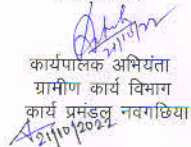 21/10/22
कार्यपालक अभियंता
ग्रामीण कार्य विभाग
कार्य प्रमंडल, नवगछिया
21/10/2022